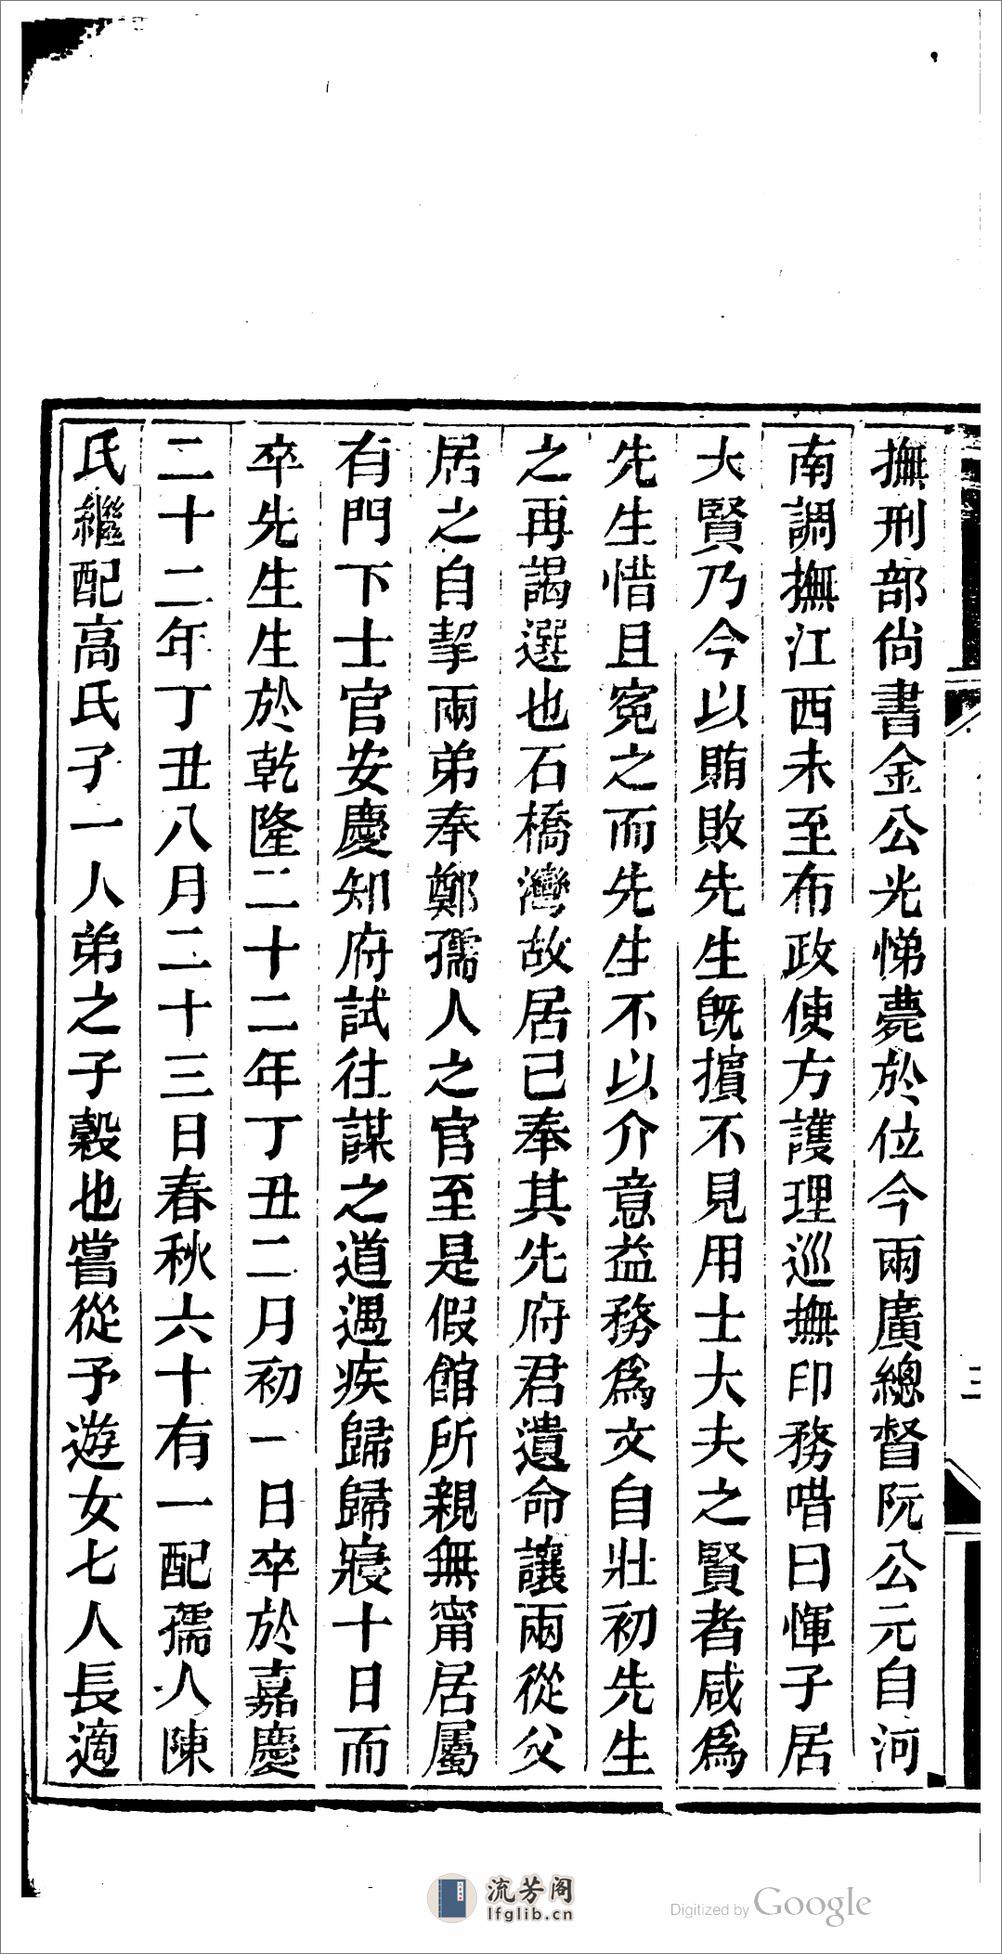 撫刑部尙書金公光悌薨於位今兩廣總督阮公元自河
南調撫江西未至布政使方護理巡撫印務唶曰惲子居
大賢乃今以賄敗先生旣擯不見用士大夫之賢者咸爲
先生惜且寃之而先生不以介意益務爲文自壯初先生
之再謁選也石橋灣故居已奉其先府君遺命讓兩從父
居之自挈兩弟奉鄭孺人之官至是假館所親無甯居屬
有門下士官安慶知府試往謀之道遇疾歸歸寢十日而
卒先生生於乾隆二十二年丁丑二月初一日卒於嘉慶
二十二年丁丑八月二十三日春秋六十有一配孺人陳
氏繼配高氏子一人弟之子穀也嘗從予遊女七人長適
三
流芳阁
lfglib.cn
Digitized by Google